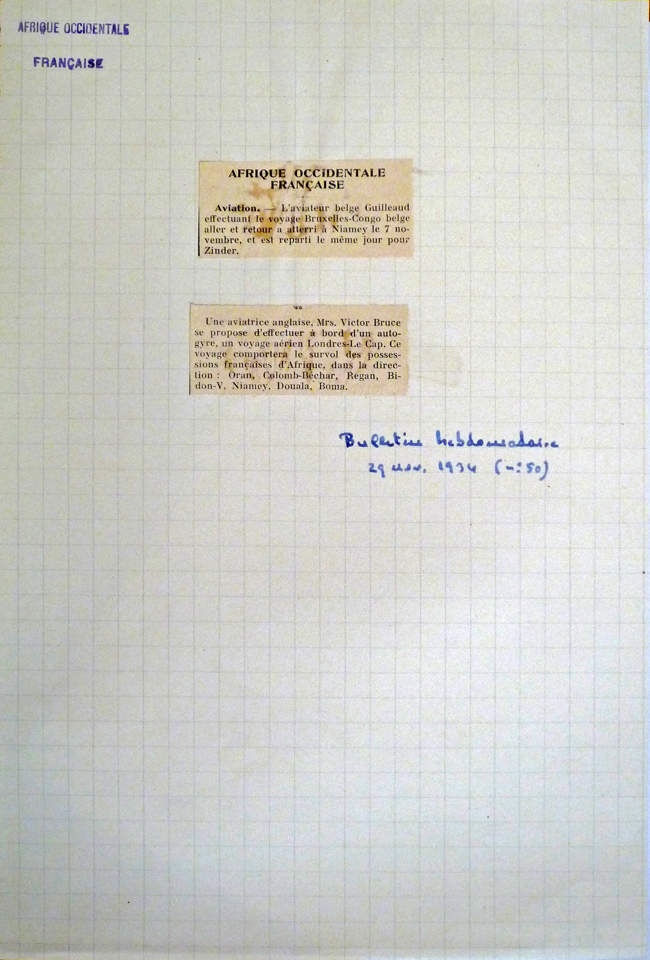 AFRIQUE OCCIDENTALE
FRANÇAISE
AFRIQUE OCCIDENTALE
FRANÇAISE
Aviation. — L'aviateur belge Guilleaud
effectuant le voyage Bruxelles-Congo belge
aller et retour a atterri à Niamey le 7 no-
vembre, et est reparti le même jour pour
Zinder.
Une aviatrice anglaise, Mrs. Victor Bruce
se propose d'effectuer à bord d'un auto-
gyre, un voyage aérien Londres-Le Cap. Ce
voyage comportera le survol des posses-
sions françaises d'Afrique, dans la direc-
tion : Oran, Colomb-Béchar, Regan, Bi-
don-V, Niamey, Douala, Boma.
Bulletin hebdomadaire
29 nov. 1934 (n: 50)